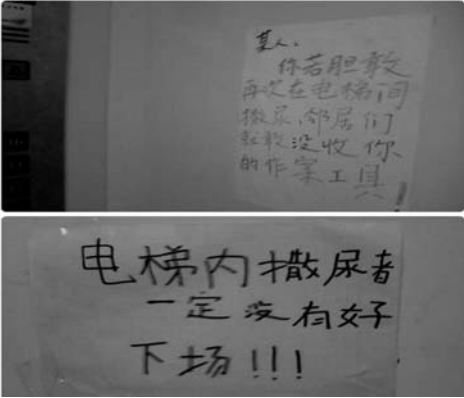 某人。
你若胆敢
再次在电梯间
撒尿,邻居们
就敢没收你
的作案工具!
电梯内撒尿者
一定没有好
下场!!!